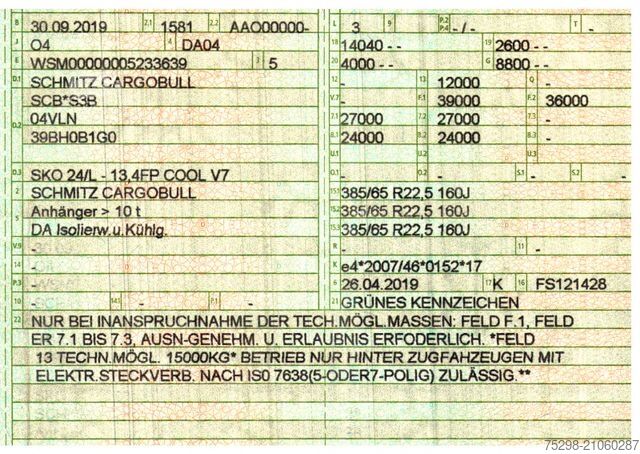 B 30.09.2019 2.1 1581 2.2 AAO00000-
J O4 4 DA04
E WSM00000005233639 3 5
D.1 SCHMITZ CARGOBULL
SCB*S3B
D.2 04VLN
39BH0B1G0
D.3 SKO 24/L - 13,4FP COOL V7
2 SCHMITZ CARGOBULL
5 Anhänger > 10 t
DA Isolierw.u.Kühlg.
V.9 -
14 -
P.3 -
10 - 14.1 - P.1 -
L 3 9 - P.2 P.4 - / - T -
18 14040 - - 19 2600 - -
20 4000 - - G 8800 - -
12 - 13 12000 Q -
V.7 - F.1 39000 F.2 36000
7.1 27000 7.2 27000 7.3 -
8.1 24000 8.2 24000 8.3 -
U.1 - U.2 - U.3 -
O.1 - O.2 - S.1 - S.2 -
15.1 385/65 R22,5 160J
15.2 385/65 R22,5 160J
15.3 385/65 R22,5 160J
R - 11 -
K e4*2007/46*0152*17
6 26.04.2019 17 K 16 FS121428
21 GRÜNES KENNZEICHEN
22 NUR BEI INANSPRUCHNAHME DER TECH.MÖGL.MASSEN: FELD F.1, FELD
ER 7.1 BIS 7.3, AUSN-GENEHM. U. ERLAUBNIS ERFODERLICH. *FELD
13 TECHN.MÖGL. 15000KG* BETRIEB NUR HINTER ZUGFAHZEUGEN MIT
ELEKTR.STECKVERB. NACH IS0 7638(5-ODER7-POLIG) ZULÄSSIG.**
75298-21060287